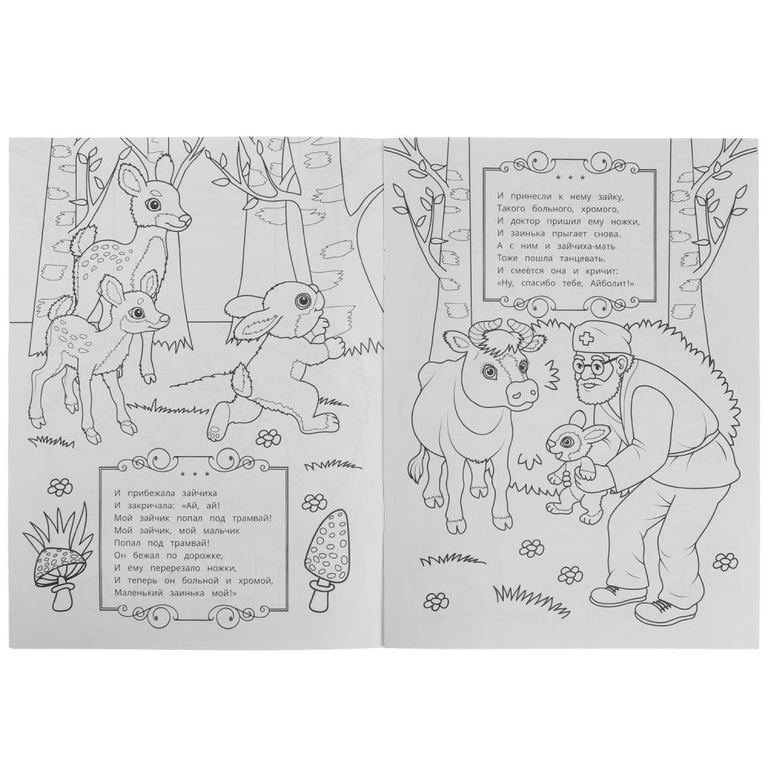 И прибежала зайчиха
И закричала: «Ай, ай!
Мой зайчик попал под трамвай!
Мой зайчик, мой мальчик
Попал под трамвай!
Он бежал по дорожке,
И ему перерезало ножки,
И теперь он больной и хромой,
Маленький заинька мой!»
И принесли к нему зайку,
Такого больного, хромого,
И доктор пришил ему ножки,
И заинька прыгает снова.
А с ним и зайчиха-мать
Тоже пошла танцевать.
И смеётся она и кричит:
«Ну, спасибо тебе, Айболит!»